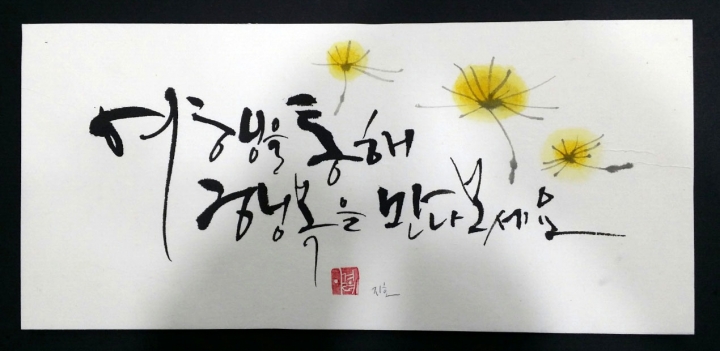 여행을 통해
행복을 만나보세요